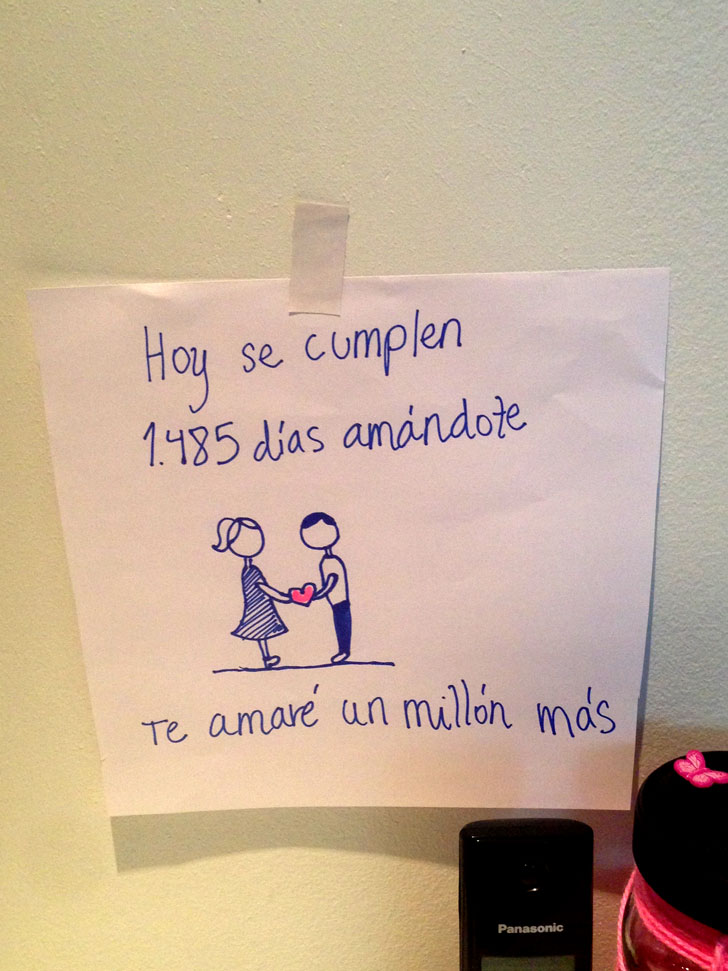 Hoy se cumplen
1.485 días amándote
Te amaré un millón más
Panasonic